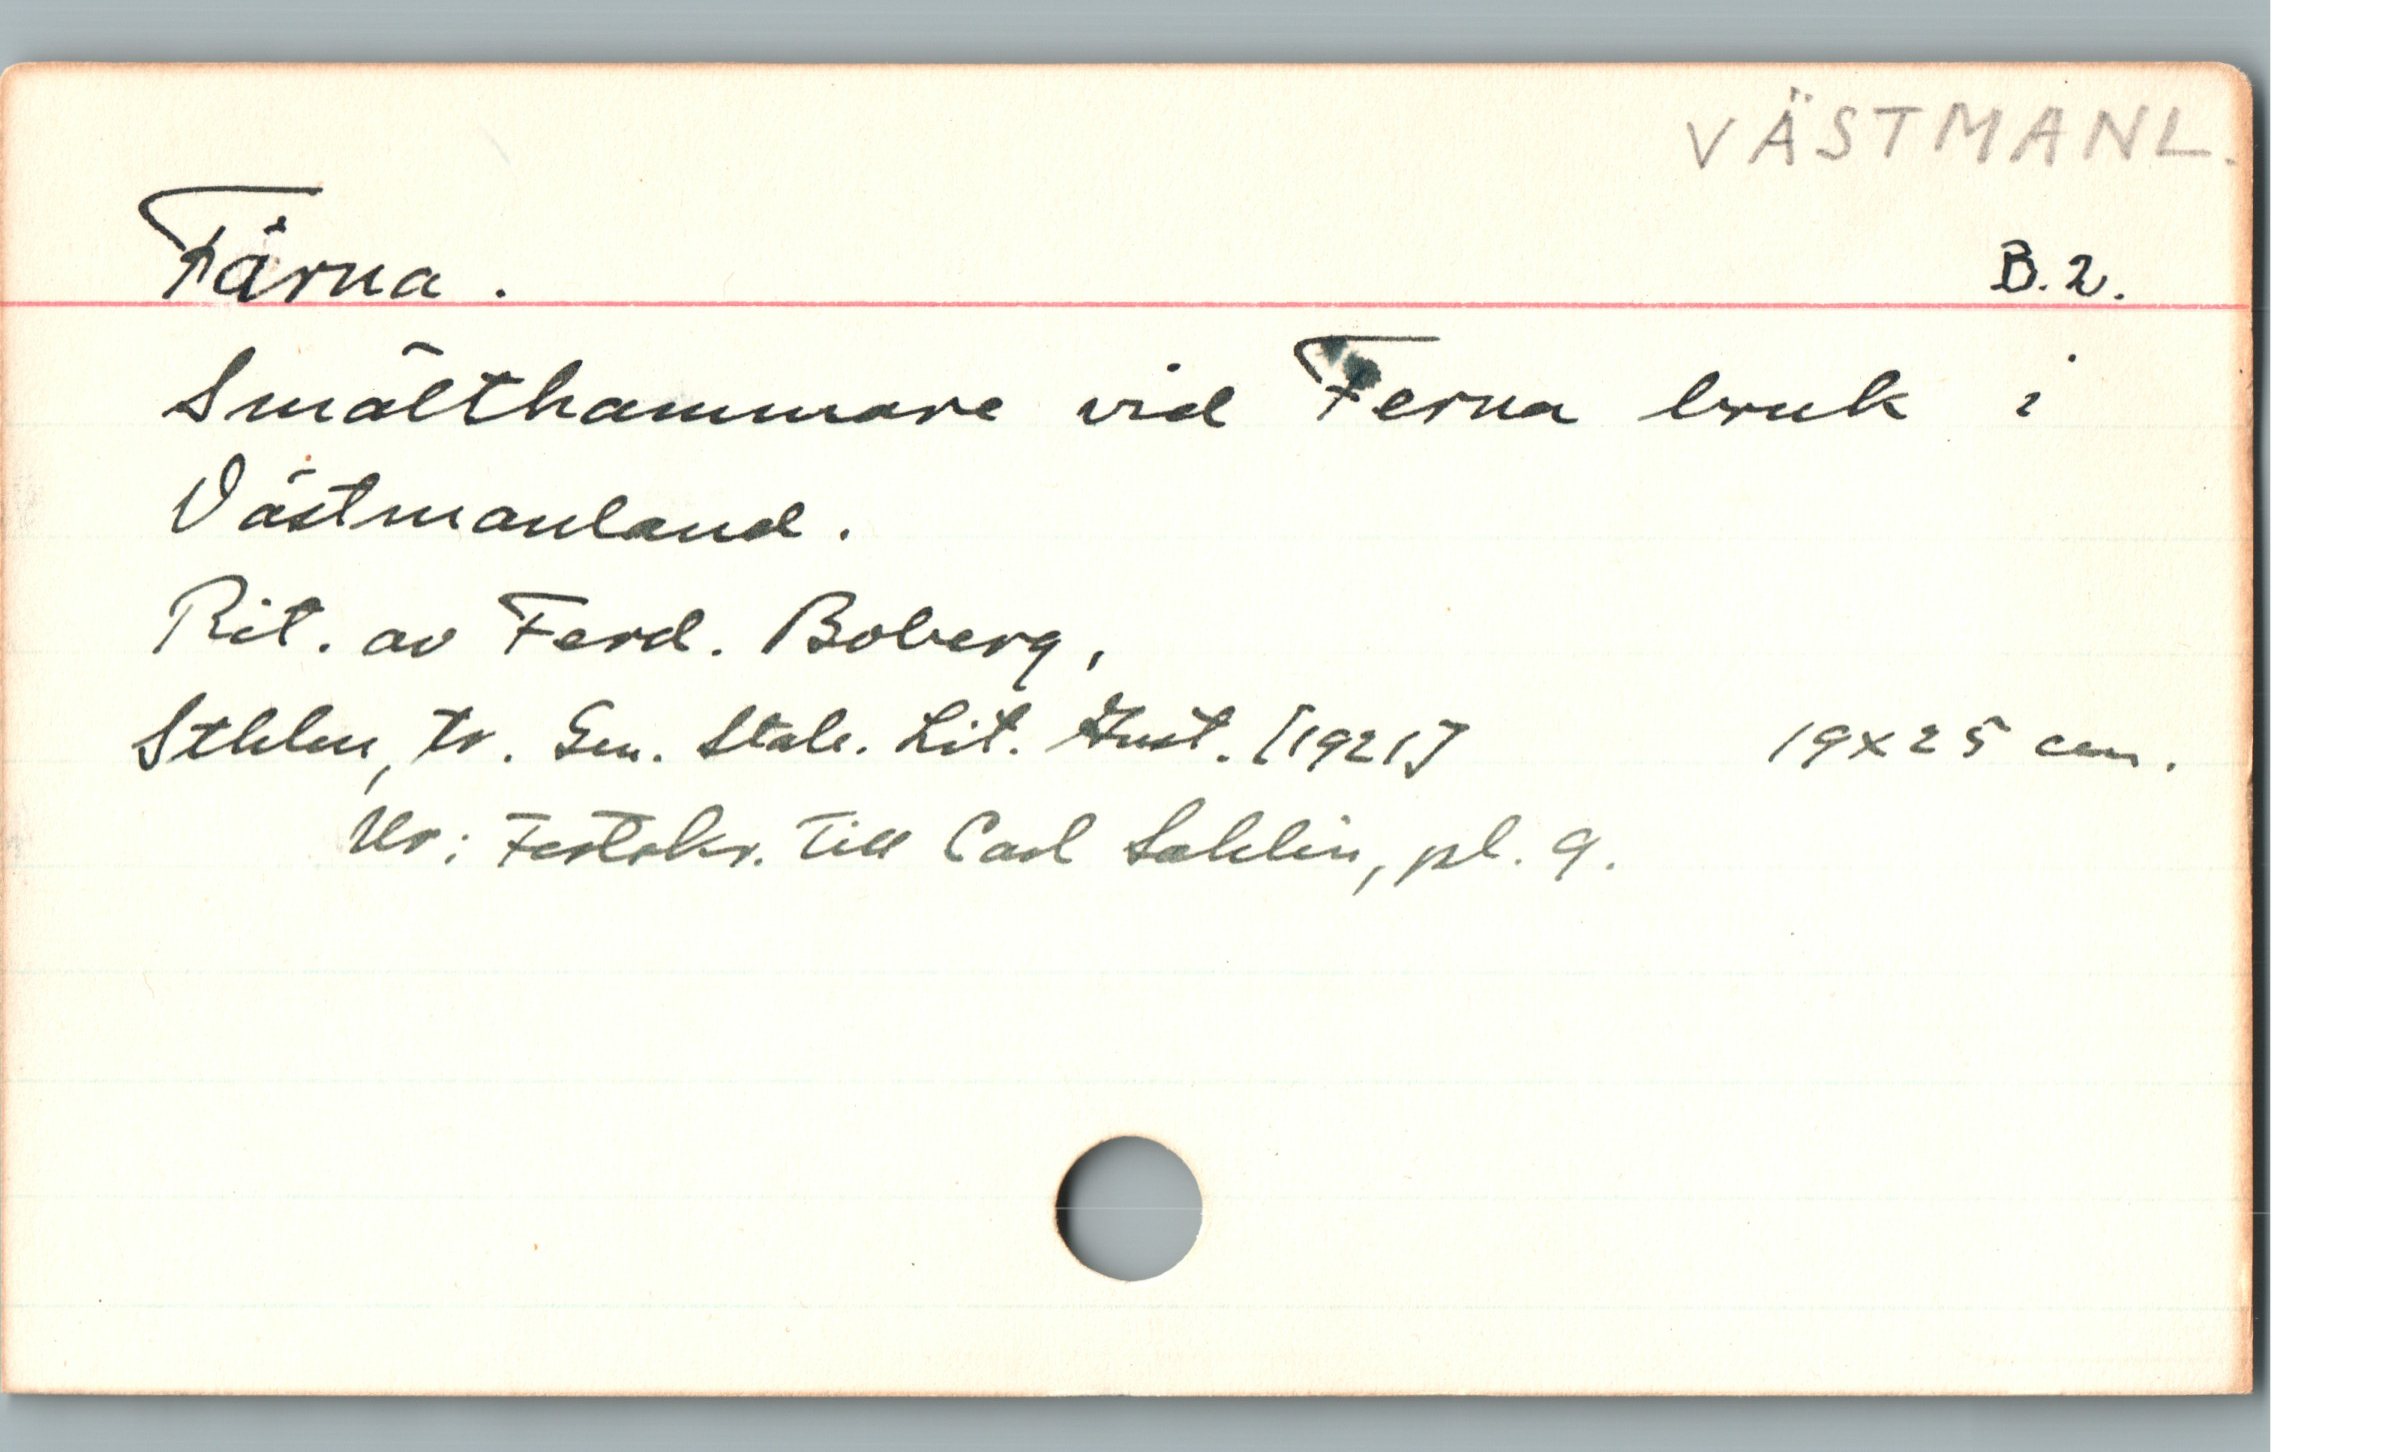 VÄSTMANL.
Färna. B.2.
Smälthammare vid Ferna bruk i
Västmanland.
Rit. av Ferd. Boberg,
Sthlm, tr. Gen. Stab. Lit. Inst. [1921] 19x25 cm.
Ur: Festskr. till Carl Sahlin, pl. 9.